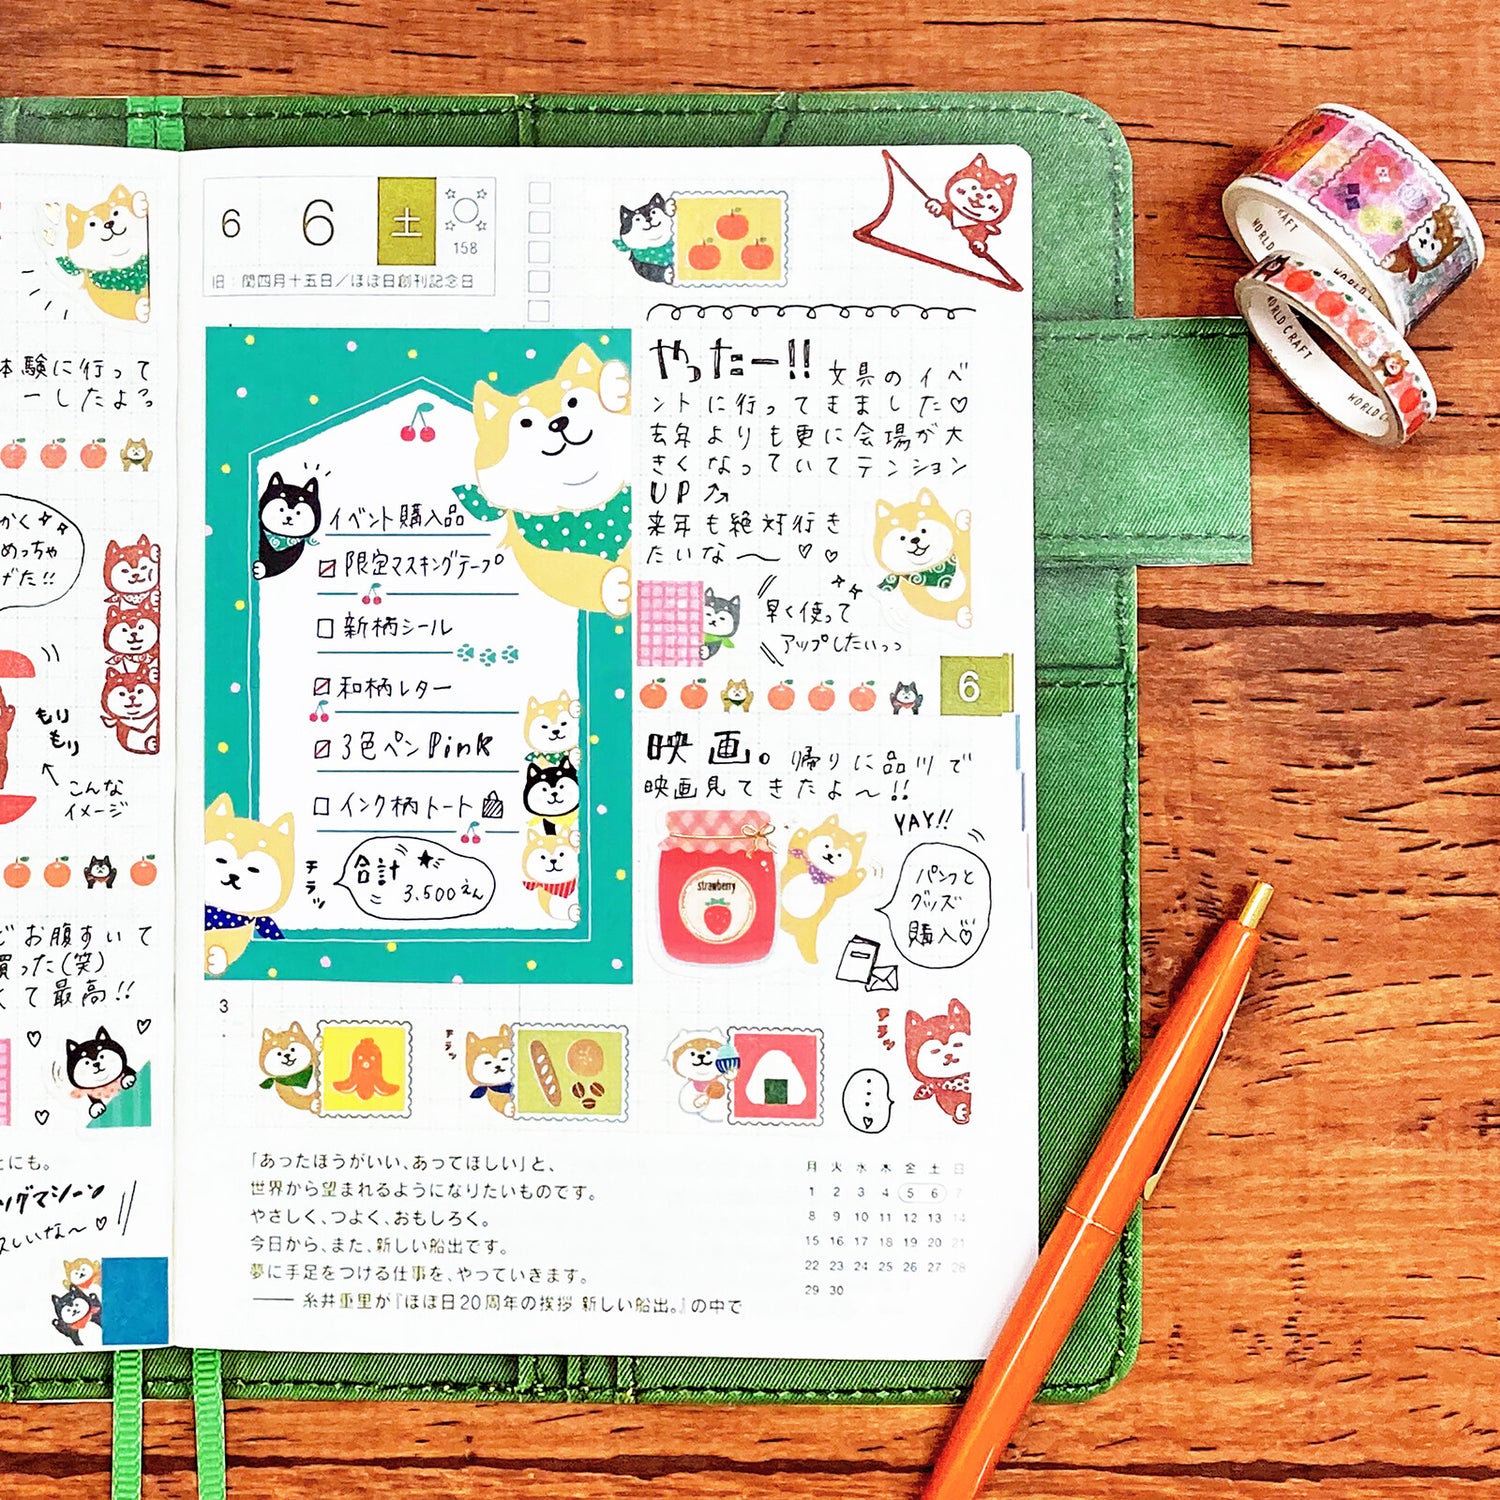 体験に行って
ーしたよっ
かく
めっちゃ
げた!!
もり
もり
こんな
イメージ
どお腹すいて
買った(笑)
くて最高!!
とにも。
ングマシーン
いな〜♡
6 6 土
158
旧:閏四月十五日/ほぼ日創刊記念日
イベント購入品
限定マスキングテープ
新柄シール
和柄レター
3色ペン Pink
インク柄トート
チラッ
合計
3,500えん
やったー!! 文具のイベ
ントに行ってきました♡
去年よりも更に会場が大
きくなっていてテンション
UP
来年も絶対行き
たいな〜♡♡
早く使って
アップしたいっっ
6
映画。帰りに品川で
映画見てきたよ〜!!
YAY!!
パンフと
グッズ
購入♡
strawberry
3
チラッ
チラッ
「あったほうがいい、あってほしい」と、
世界から望まれるようになりたいものです。
やさしく、つよく、おもしろく。
今日から、また、新しい船出です。
夢に手足をつける仕事を、やっていきます。
―― 糸井重里が『ほぼ日20周年の挨拶 新しい船出。』の中で
月 火 水 木 金 土 日
1 2 3 4 5 6 7
8 9 10 11 12 13 14
15 16 17 18 19 20 21
22 23 24 25 26 27 28
29 30
WORLD CRAFT
WORLD
WORLD CRAFT
WORLD C